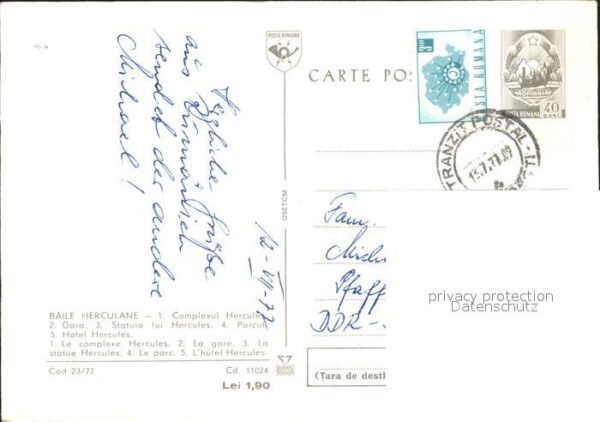 Herzliche Grüße
aus Rumänien
sendet der andere
Michael!
12. VII. 77
POSTA ROMANA
CARTE PO
3
POSTA ROMANA
POSTA ROMANA
40
BANI
TRANZIT POSTAL
13.7.77.
OSETOM
Fam.
Mich
Pfaff
DDR-
privacy protection
Datenschutz
BĂILE HERCULANE – 1. Complexul Hercule
2. Gara. 3. Statuia lui Hercules. 4. Parcul
5. Hotel Hercules.
1. Le complexe Hercules. 2. La gare. 3. La
statue Hercules. 4. Le parc. 5. L'hôtel Hercules.
Cod 23/77
Cd. 11024
Lei 1,90
(Țara de desti